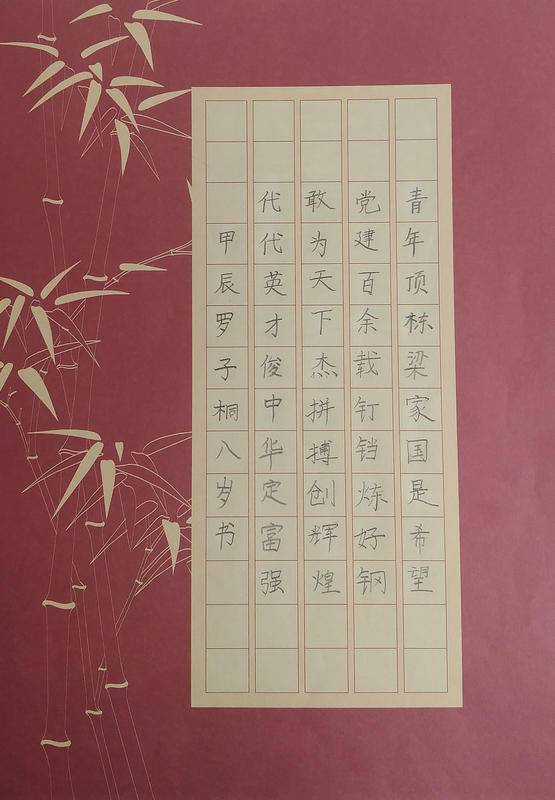 青年顶栋梁家国是希望
党建百余载钉铛炼好钢
敢为天下杰拼搏创辉煌
代代英才俊中华定富强
甲辰罗子桐八岁书